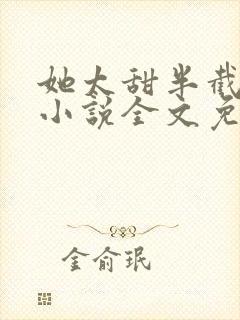 她太甜半截
小说全文免
金俞珉